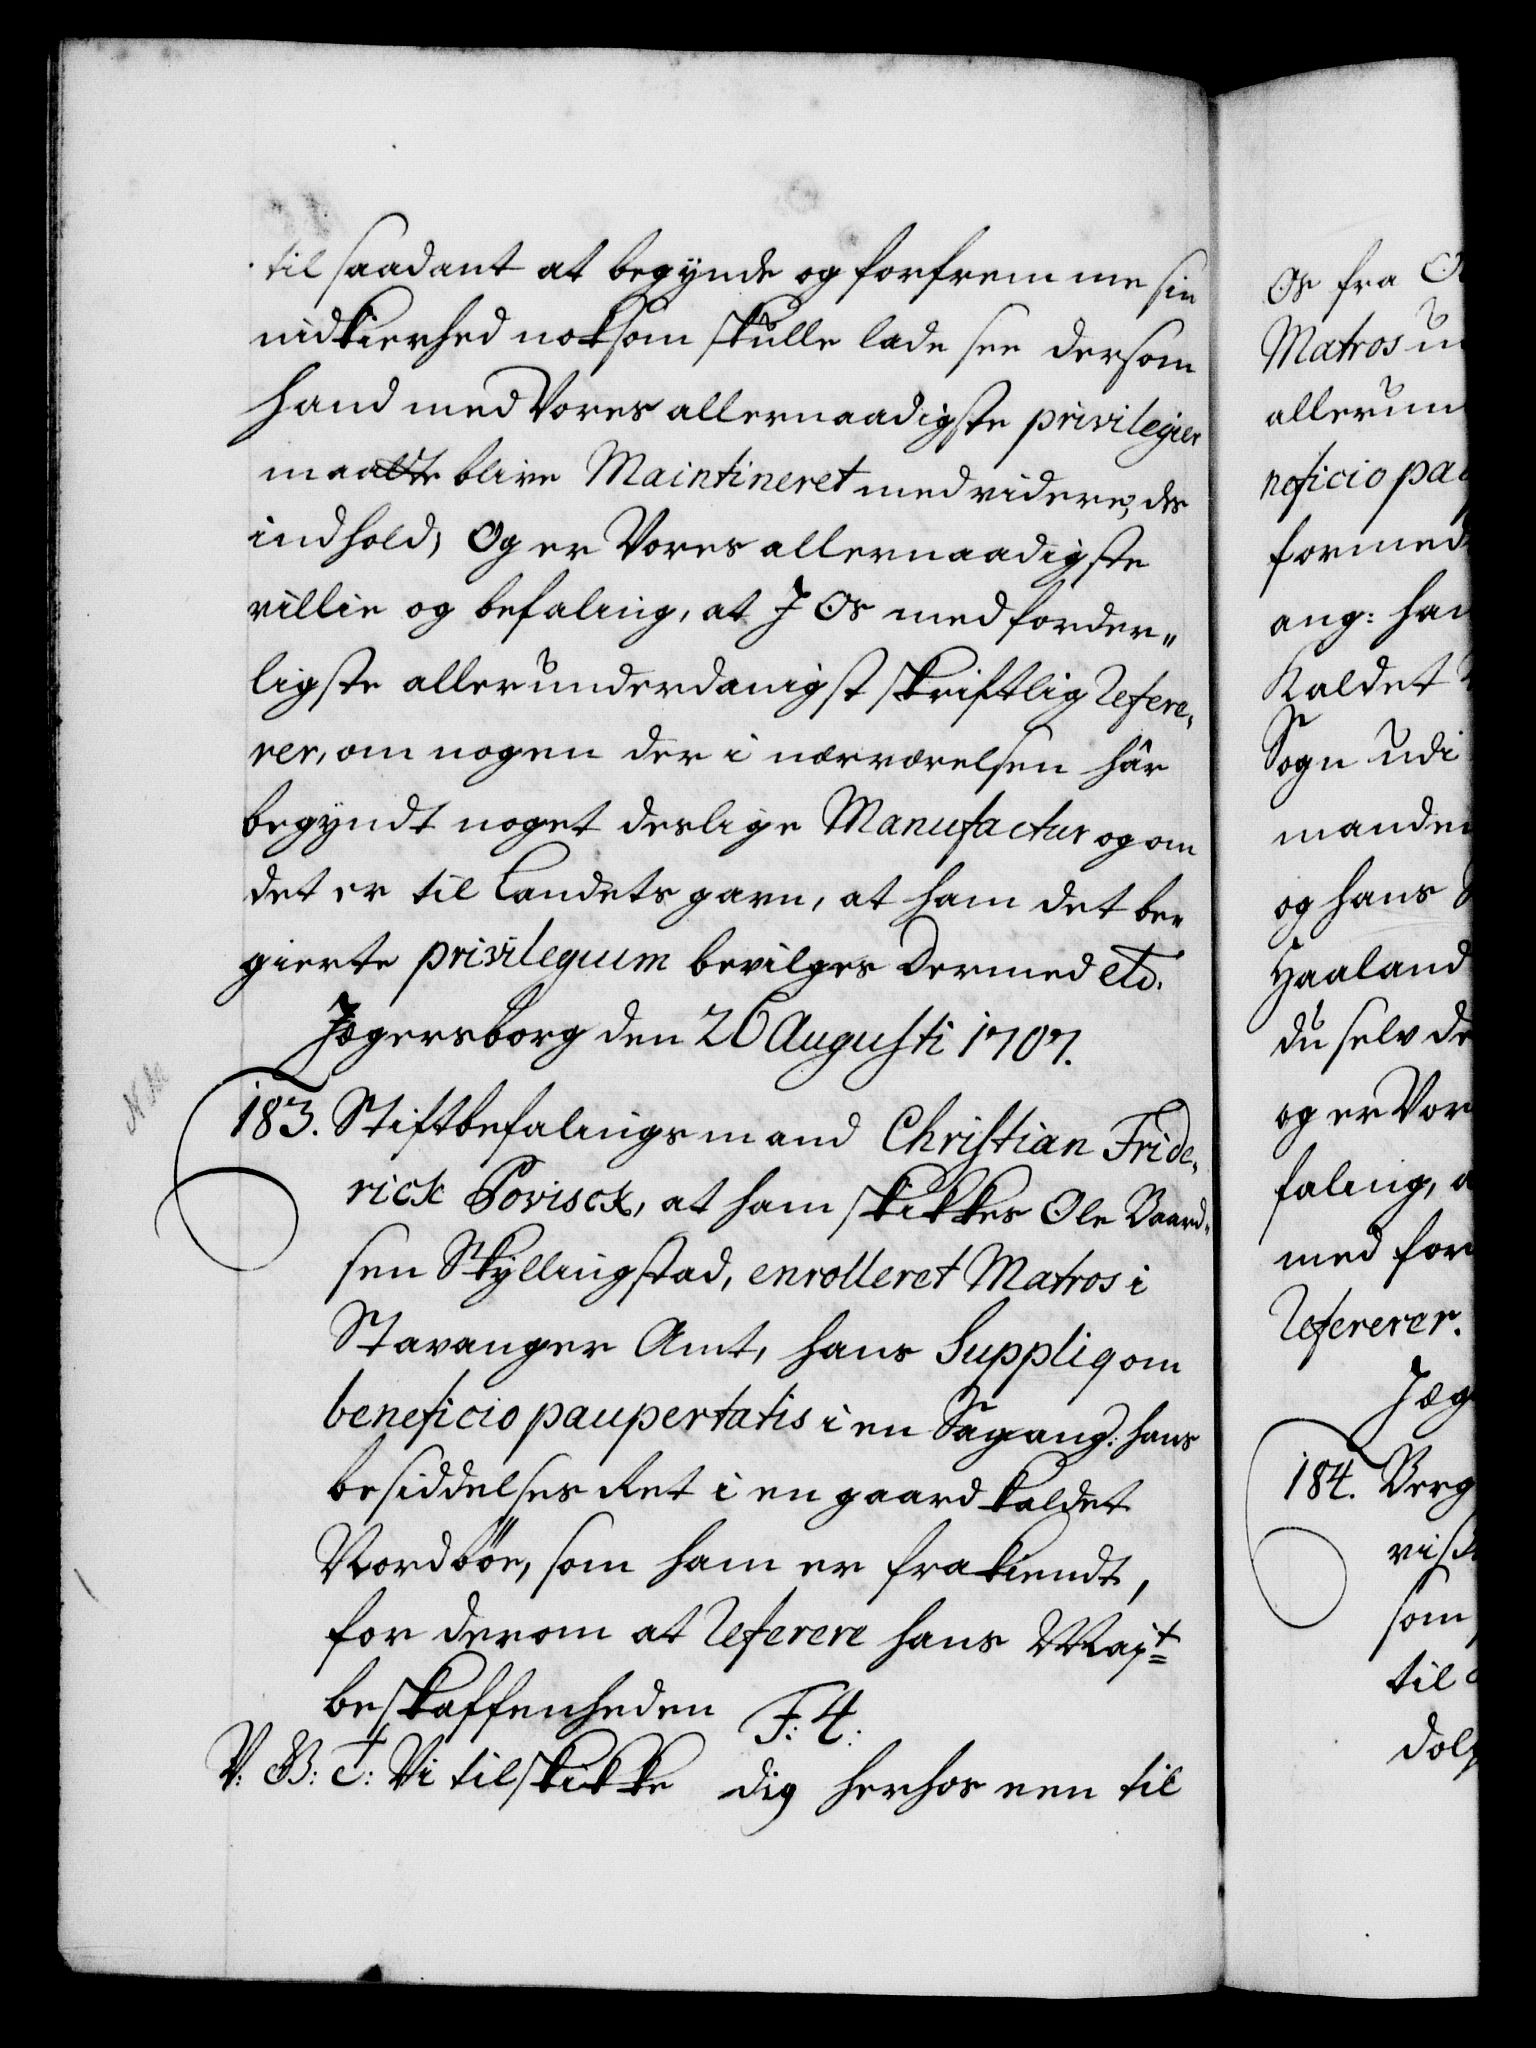 til saadant at begynde og forfremme sin
nidkierhed noksom skulle lade see dersom
hand med Vores allernaadigste privilegier
maatte blive Maintineret med videre, des
indhold; Og er Vores allernaadigste
villie og befaling, at I Os med forder„
ligste allerunderdanigst skriftlig Refere„
rer, om nogen der i nærværelsen hâr
begyndt noget deslige Manufactur og om
det er til Landets gavn, at ham det be„
gierte privilegium bevilges Dermed etc.
Jægersborg den 26 Augusti 1707.
183. Stiftbefalingsmand Christian Fride„
rick Povisch, at ham skikkes Ole Baard„
sen Skyllingstad, enrolleret Matros i
Stavanger Amt, hans Suppliq om
beneficio paupertatis i en Sag ang: hans
besiddelses Ret i en gaard kaldet
Nordböe, som ham er frakiendt,
for derom at Referere hans Majt
beskaffenheden F: 4:
V: G: T: Vi tilskikke dig herhos een til
Os fra
Matros
allerun
neficio pau
formed
ang: han
Kaldet
Sogn udi
manden
og hans
Haaland
du selv de
og er Vor
faling, a
med for
Refererer.
Jæg
184. Berg
visch
som
til